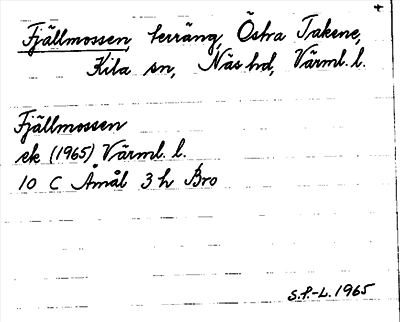 Fjällmossen, terräng, Östra Takene,
Kila sn, Näs hd, Värml. l.
Fjällmossen
ek (1965) Värml. l.
10 C Åmål 3 h Bro
S.P.-L. 1965